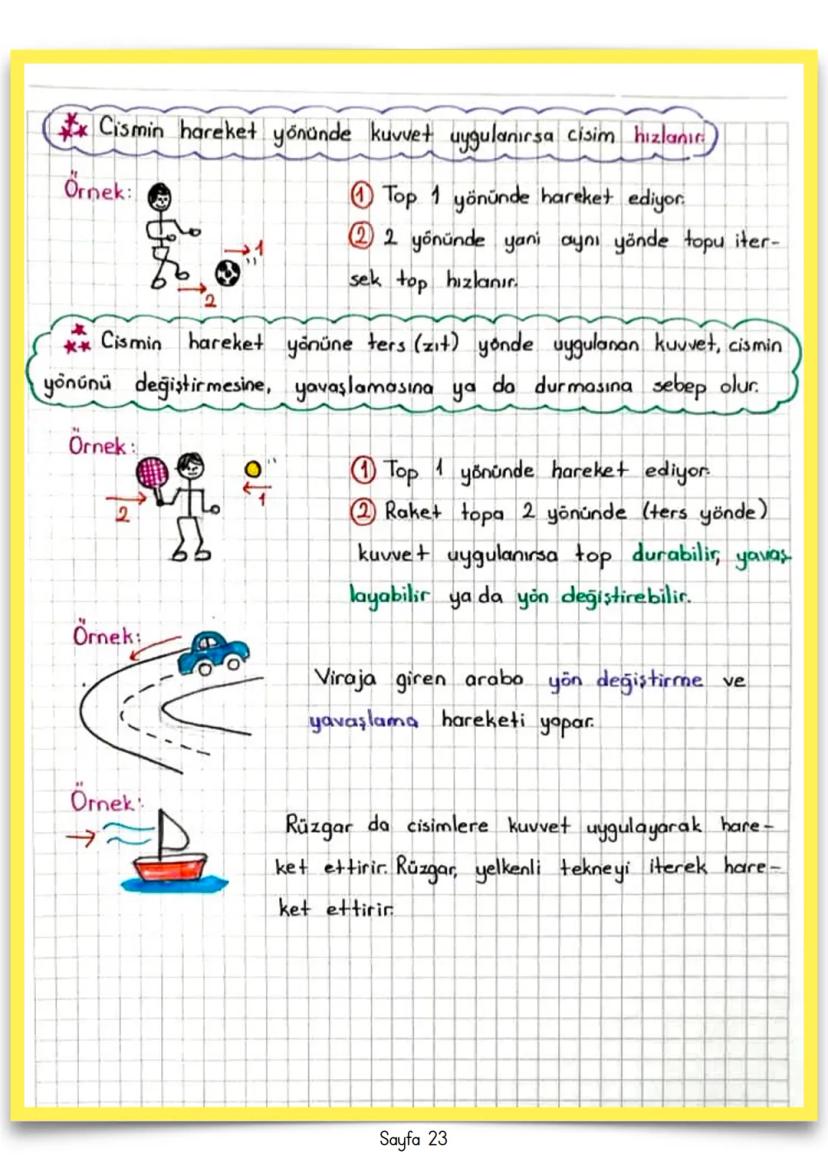 Cismin hareket yönünde kuvvet uygulanırsa cisim hızlanır.
Örnek:
① Top 1 yönünde hareket ediyor.
② 2 yönünde yani aynı yönde topu iter-
sek top hızlanır.
1
2
Cismin hareket yönüne ters (zıt) yönde uygulanan kuvvet, cismin
yönünü değiştirmesine, yavaşlamasına ya da durmasına sebep olur.
Örnek:
2
1
① Top 1 yönünde hareket ediyor.
② Raket topa 2 yönünde (ters yönde)
kuvvet uygulanırsa top durabilir, yavaş
layabilir ya da yön değiştirebilir.
Örnek:
Viraja giren araba yön değiştirme ve
yavaşlama hareketi yapar.
Örnek:
Rüzgar da cisimlere kuvvet uygulayarak hare-
ket ettirir. Rüzgar, yelkenli tekneyi iterek hare-
ket ettirir.
Sayfa 23